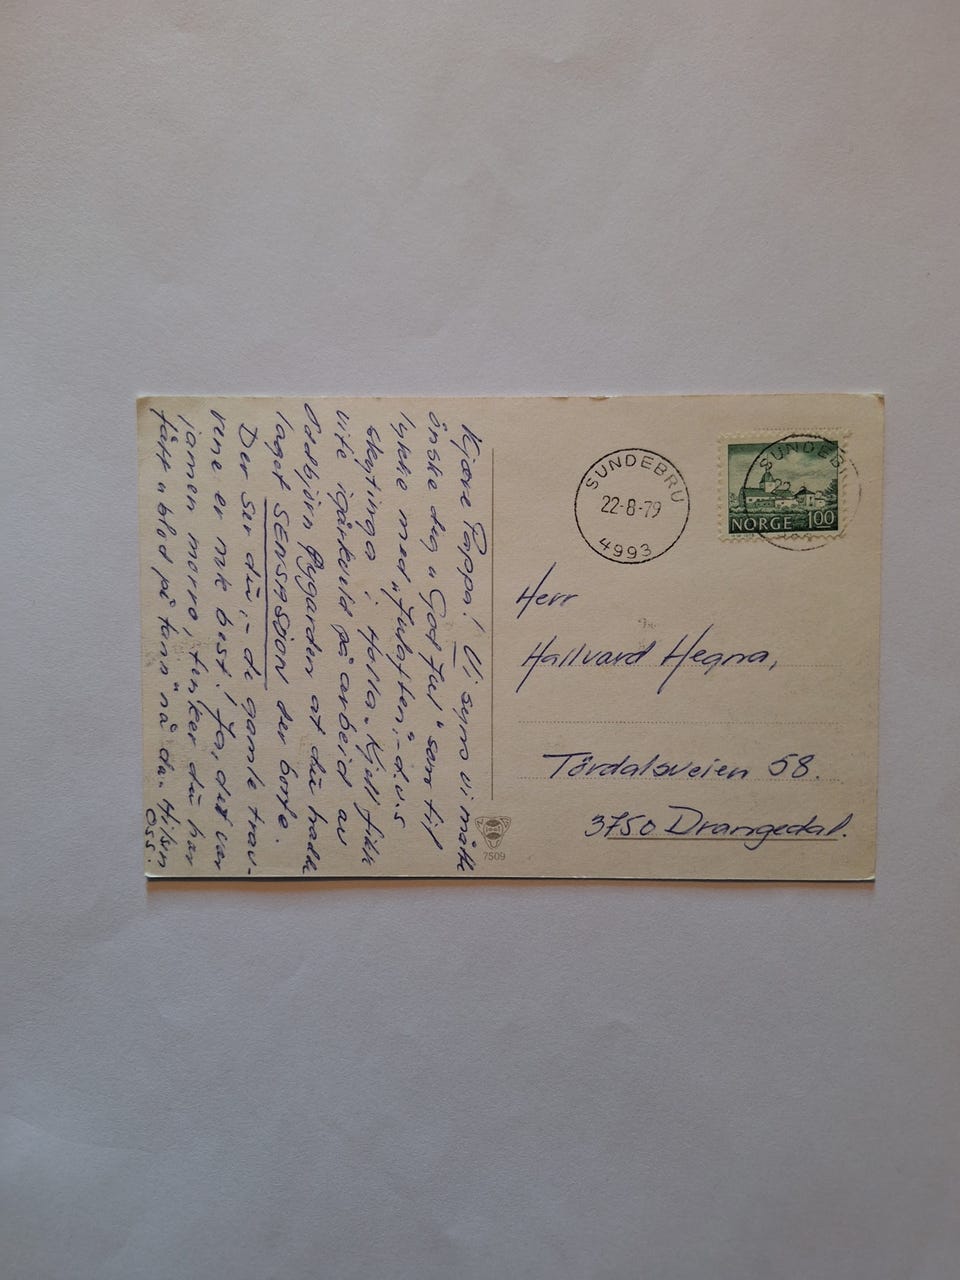 Kjære Pappa! Vi syns vi måtte
ønske deg "God Jul" samt til
lykke med "Julaften",- d.v.s
skytinga i Halla. Kjell fikk
vite igårkveld på arbeid av
Oddbjørn Øygarden at du hadde
laget SENSASJON der borte.
Der ser du,- de gamle trav-
erne er nok best! Ja, det var
jamen morro, tenker du har
fått "blod på tann" nå da. Hilsn
OSS.
SUNDEBRU
22-8-79
4993
SUNDEBRU
22-8
NORGE 1.00
Herr
Hallvard Hegna,
Tørdalsveien 58.
3750 Drangedal.
7509